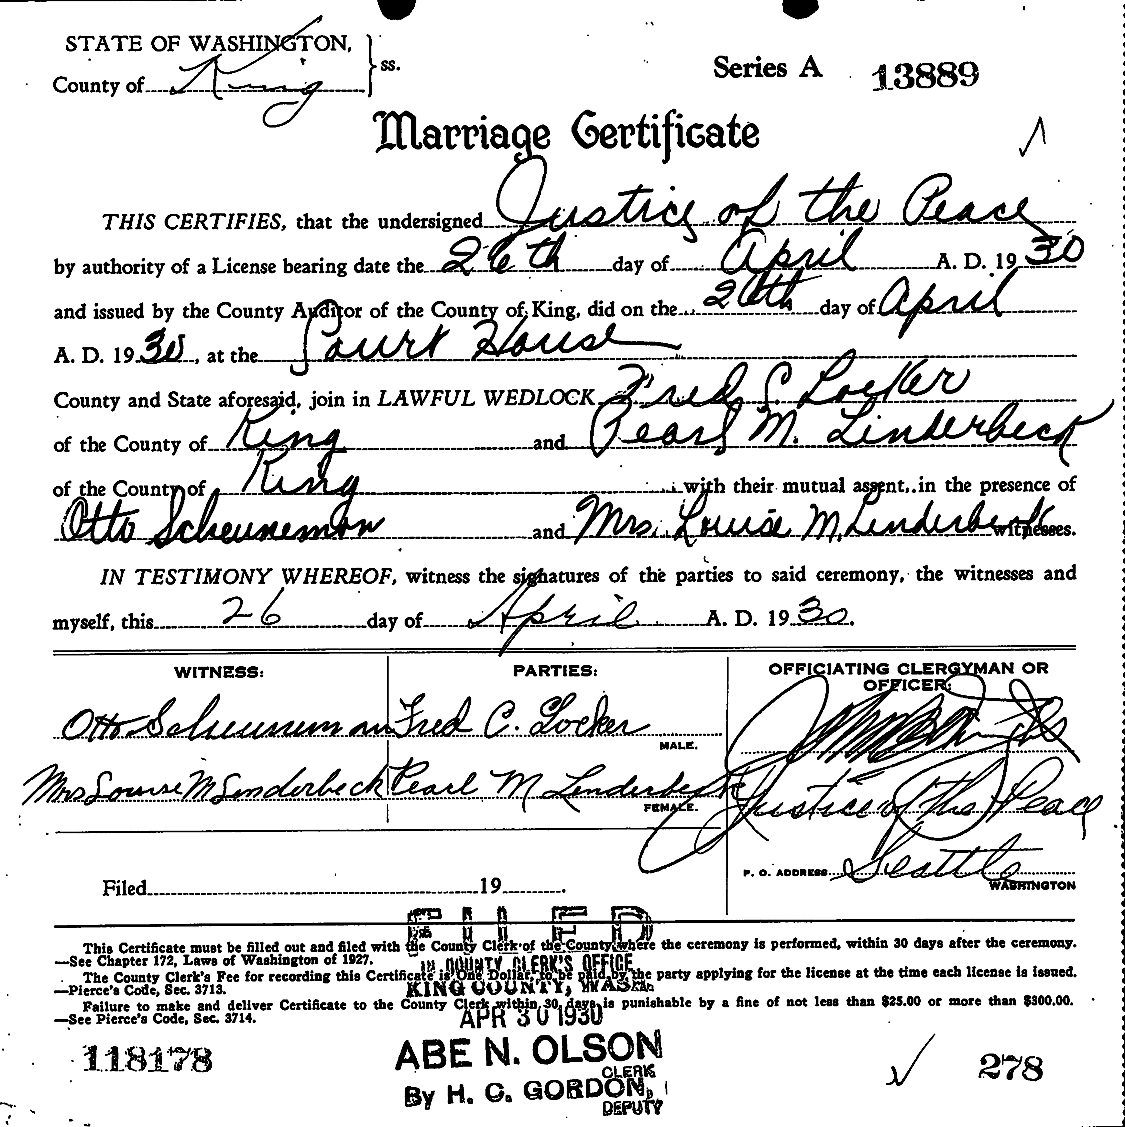 STATE OF WASHINGTON,
County of King ss.
Series A 13889
Marriage Certificate
THIS CERTIFIES, that the undersigned Justice of the Peace
by authority of a License bearing date the 26th day of April A. D. 1930
and issued by the County Auditor of the County of King, did on the 26th day of April
A. D. 1930, at the Court House
County and State aforesaid, join in LAWFUL WEDLOCK Fred C. Locker
of the County of King and Pearl M. Linderbeck
of the County of King with their mutual assent, in the presence of
Otto Scheuneman and Mrs. Louise M. Linderbeck witnesses.
IN TESTIMONY WHEREOF, witness the signatures of the parties to said ceremony, the witnesses and
myself, this 26 day of April A. D. 1930.
WITNESS: PARTIES: OFFICIATING CLERGYMAN OR
OFFICER:
Otto Scheuneman Fred C. Locker
MALE.
Mrs Louise M Linderbeck Pearl M Linderbeck Justice of the Peace
FEMALE.
P. O. ADDRESS Seattle
WASHINGTON
Filed 19 .
FILED
This Certificate must be filled out and filed with the County Clerk of the County where the ceremony is performed, within 30 days after the ceremony.
—See Chapter 172, Laws of Washington of 1927.
IN COUNTY CLERK'S OFFICE
The County Clerk's Fee for recording this Certificate is One Dollar, to be paid by the party applying for the license at the time each license is issued.
—Pierce's Code, Sec. 3713.
KING COUNTY, WASH.
Failure to make and deliver Certificate to the County Clerk within 30 days is punishable by a fine of not less than $25.00 or more than $300.00.
—See Pierce's Code, Sec. 3714.
APR 30 1930
118178 ABE N. OLSON 278
CLERK
By H. C. GORDON,
DEPUTY